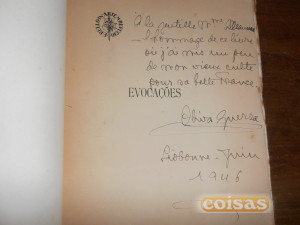 À la gentille Mme
l'hommage de ce livre
où j'ai mis un peu
de mon vieux culte
pour sa belle France
EVOCAÇÕES
Oliva Guerra
Lisbonne - Juin
1946
coisas